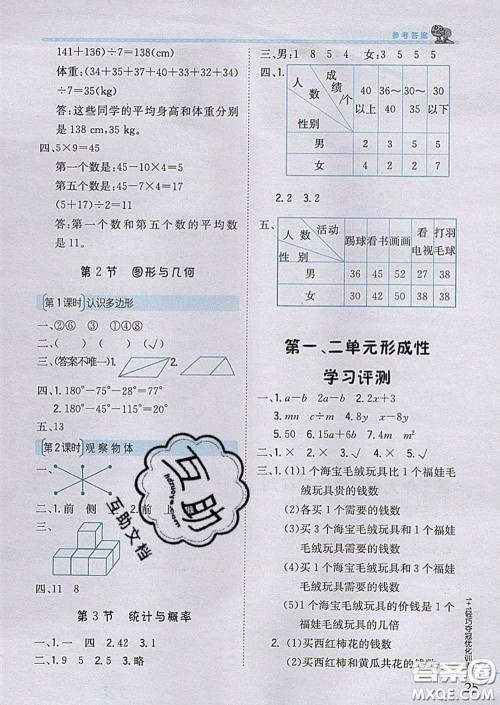 参考答案
141+136)÷7=138(cm)
体重:(34+35+37+36+32+36+35)
÷7=35(kg)
答:这些同学的平均身高和体重分别
是 138 cm,35 kg。
四、5×9=45
第一个数是:45-10×4=5
第五个数是:45-7×4=17
(5+17)÷2=11
答:第一个数和第五个数的平均数
是 11。
第 2 节 图形与几何
第1课时 认识多边形
一、②⑥ ③ ①⑦ ④ ⑤⑧
二、× √ √ √
三、(答案不唯一)1. 2.
四、1.180°-75°-28°=77°
2.180°-115°-45°=20°
五、13
第2课时 观察物体
一、
二、1.前 侧 2.前 上
三、
四、11 8
第 3 节 统计与概率
一、1.一 四 2.42 3.1
二、1.9 5 2.5 3.略
三、男:1 8 5 4 女:3 5 5 5
四、1.
人数 成绩/个 性别 40以上 40~38 36~35 30以下
男 2 5 5 4
女 4 5 7 4
2.2 3.2
五、
人数 活动 性别 踢球 看书 画画 看电视 打羽毛球
男 36 45 22 27 38
女 18 42 45 31 38
第一、二单元形成性
学习评测
一、1.a-b 2a-b 2.2x+3
3.mn c÷m 4.x-8 8y
5.50 6.15+a 2a 7.5x
二、1.× 2.× 3.√ 4.× 5.√
三、1.(1)1 个海宝毛绒玩具比 1 个福娃毛
绒玩具贵的钱数
(2)各买 1 个需要的钱数
(3)买 3 个海宝毛绒玩具和 1 个福娃
毛绒玩具需要的钱数
(4)买 1 个海宝毛绒玩具和 3 个福娃
毛绒玩具需要的钱数
(5)1 个海宝毛绒玩具的价钱是 1 个
福娃毛绒玩具的几倍
2.(1)买西红柿花的钱数
(2)买西红柿和黄瓜共花的钱数
1+1轻巧夺冠优化训
25
互助
互助文档
答案圈
MXQE.COM